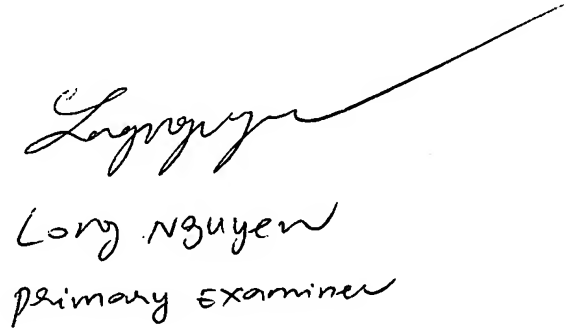 Long Nguyen
Long Nguyen
Primary Examiner